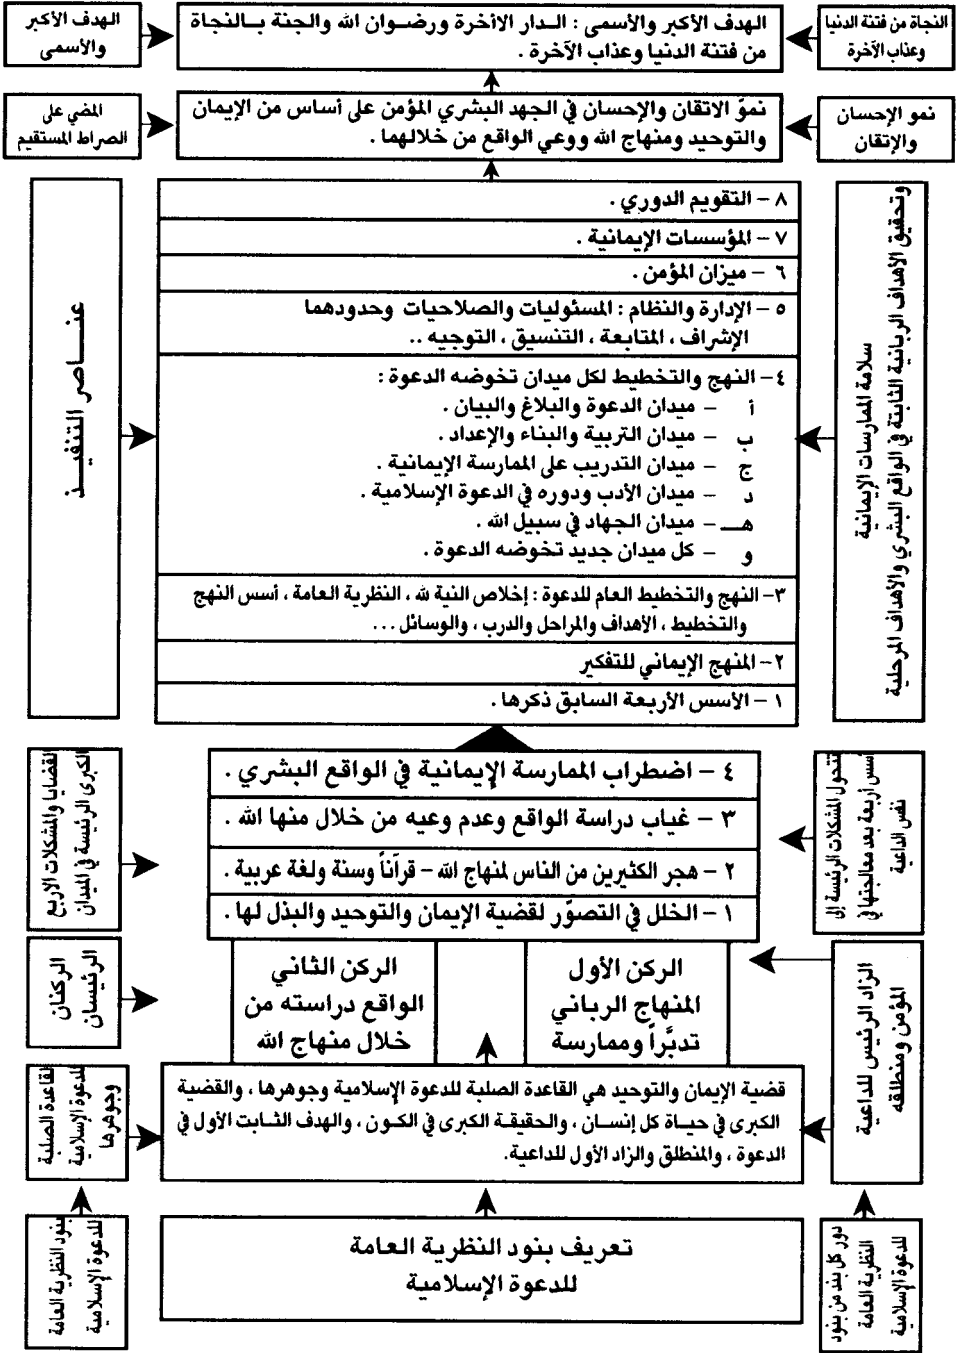 النجاة من فتنة الدنيا
وعذاب الآخرة
الهدف الأكبر والأسمى : الـدار الأآخرة ورضـوان الله والجنة بـالنجاة
من فتنة الدنيا وعذاب الآخرة .
الهدف الأكبر
والأسمى
نمو الإحسان
والإتقان
نموّ الاتقان والإحسان في الجهد البشري المؤمن على أساس من الإيمان
والتوحيد ومنهاج الله ووعي الواقع من خلالهما .
المضي على
الصراط المستقيم
سلامة الممارسات الإيمانية
وتحقيق الأهداف الربانية الثابتة في الواقع البشري والأهداف المرحلية
٨ – التقويم الدوري .
٧ – المؤسسات الإيمانية .
٦ – ميزان المؤمن .
٥ – الإدارة والنظام : المسئوليات والصلاحيات وحدودهما
الإشراف ، المتابعة ، التنسيق ، التوجيه ..
٤– النهج والتخطيط لكل ميدان تخوضه الدعوة :
أ – ميدان الدعوة والبلاغ والبيان .
ب – ميدان التربية والبناء والإعداد .
ج – ميدان التدريب على الممارسة الإيمانية .
د – ميدان الأدب ودوره في الدعوة الإسلامية .
هـــ – ميدان الجهاد في سبيل الله .
و – كل ميدان جديد تخوضه الدعوة .
٣– النهج والتخطيط العام للدعوة : إخلاص النية لله ، النظرية العامة ، أسس النهج
والتخطيط ، الأهداف والمراحل والدرب ، والوسائل ...
٢– المنهج الإيماني للتفكير
١ – الأسس الأربعة السابق ذكرها .
عنـــاصر التنفيـــذ
تتحول المشكلات الرئيسة إلى
أسس أربعة بعد معالجتها في
نفس الداعية
٤ – اضطراب الممارسة الإيمانية في الواقع البشري .
٣ – غياب دراسة الواقع وعدم وعيه من خلال منها الله .
٢ – هجر الكثيرين من الناس لمنهاج الله – قرآناً وسنة ولغة عربية .
١ – الخلل في التصوّر لقضية الإيمان والتوحيد والبذل لها .
القضايا والمشكلات الأربع
الكبرى الرئيسة في الميدان
الزاد الرئيس للداعية
المؤمن ومنطلقه
الركن الأول
المنهاج الرباني
تدبّراً وممارسة
الركن الثاني
الواقع دراسته من
خلال منهاج الله
الركنان
الرئيسان
قضية الإيمان والتوحيد هي القاعدة الصلبة للدعوة الإسلامية وجوهرها ، والقضية
الكبرى في حيـاة كل إنسـان ، والحقيقة الكبرى في الكـون ، والهدف الثـابت الأول في
الدعوة ، والمنطلق والزاد الأول للداعية.
القاعدة الصلبة
للدعوة الإسلامية
وجوهرها
دور كل بند من بنود
النظرية العامة
للدعوة الإسلامية
تعريف بنود النظرية العامة
للدعوة الإسلامية
بنود النظرية العامة
للدعوة الإسلامية